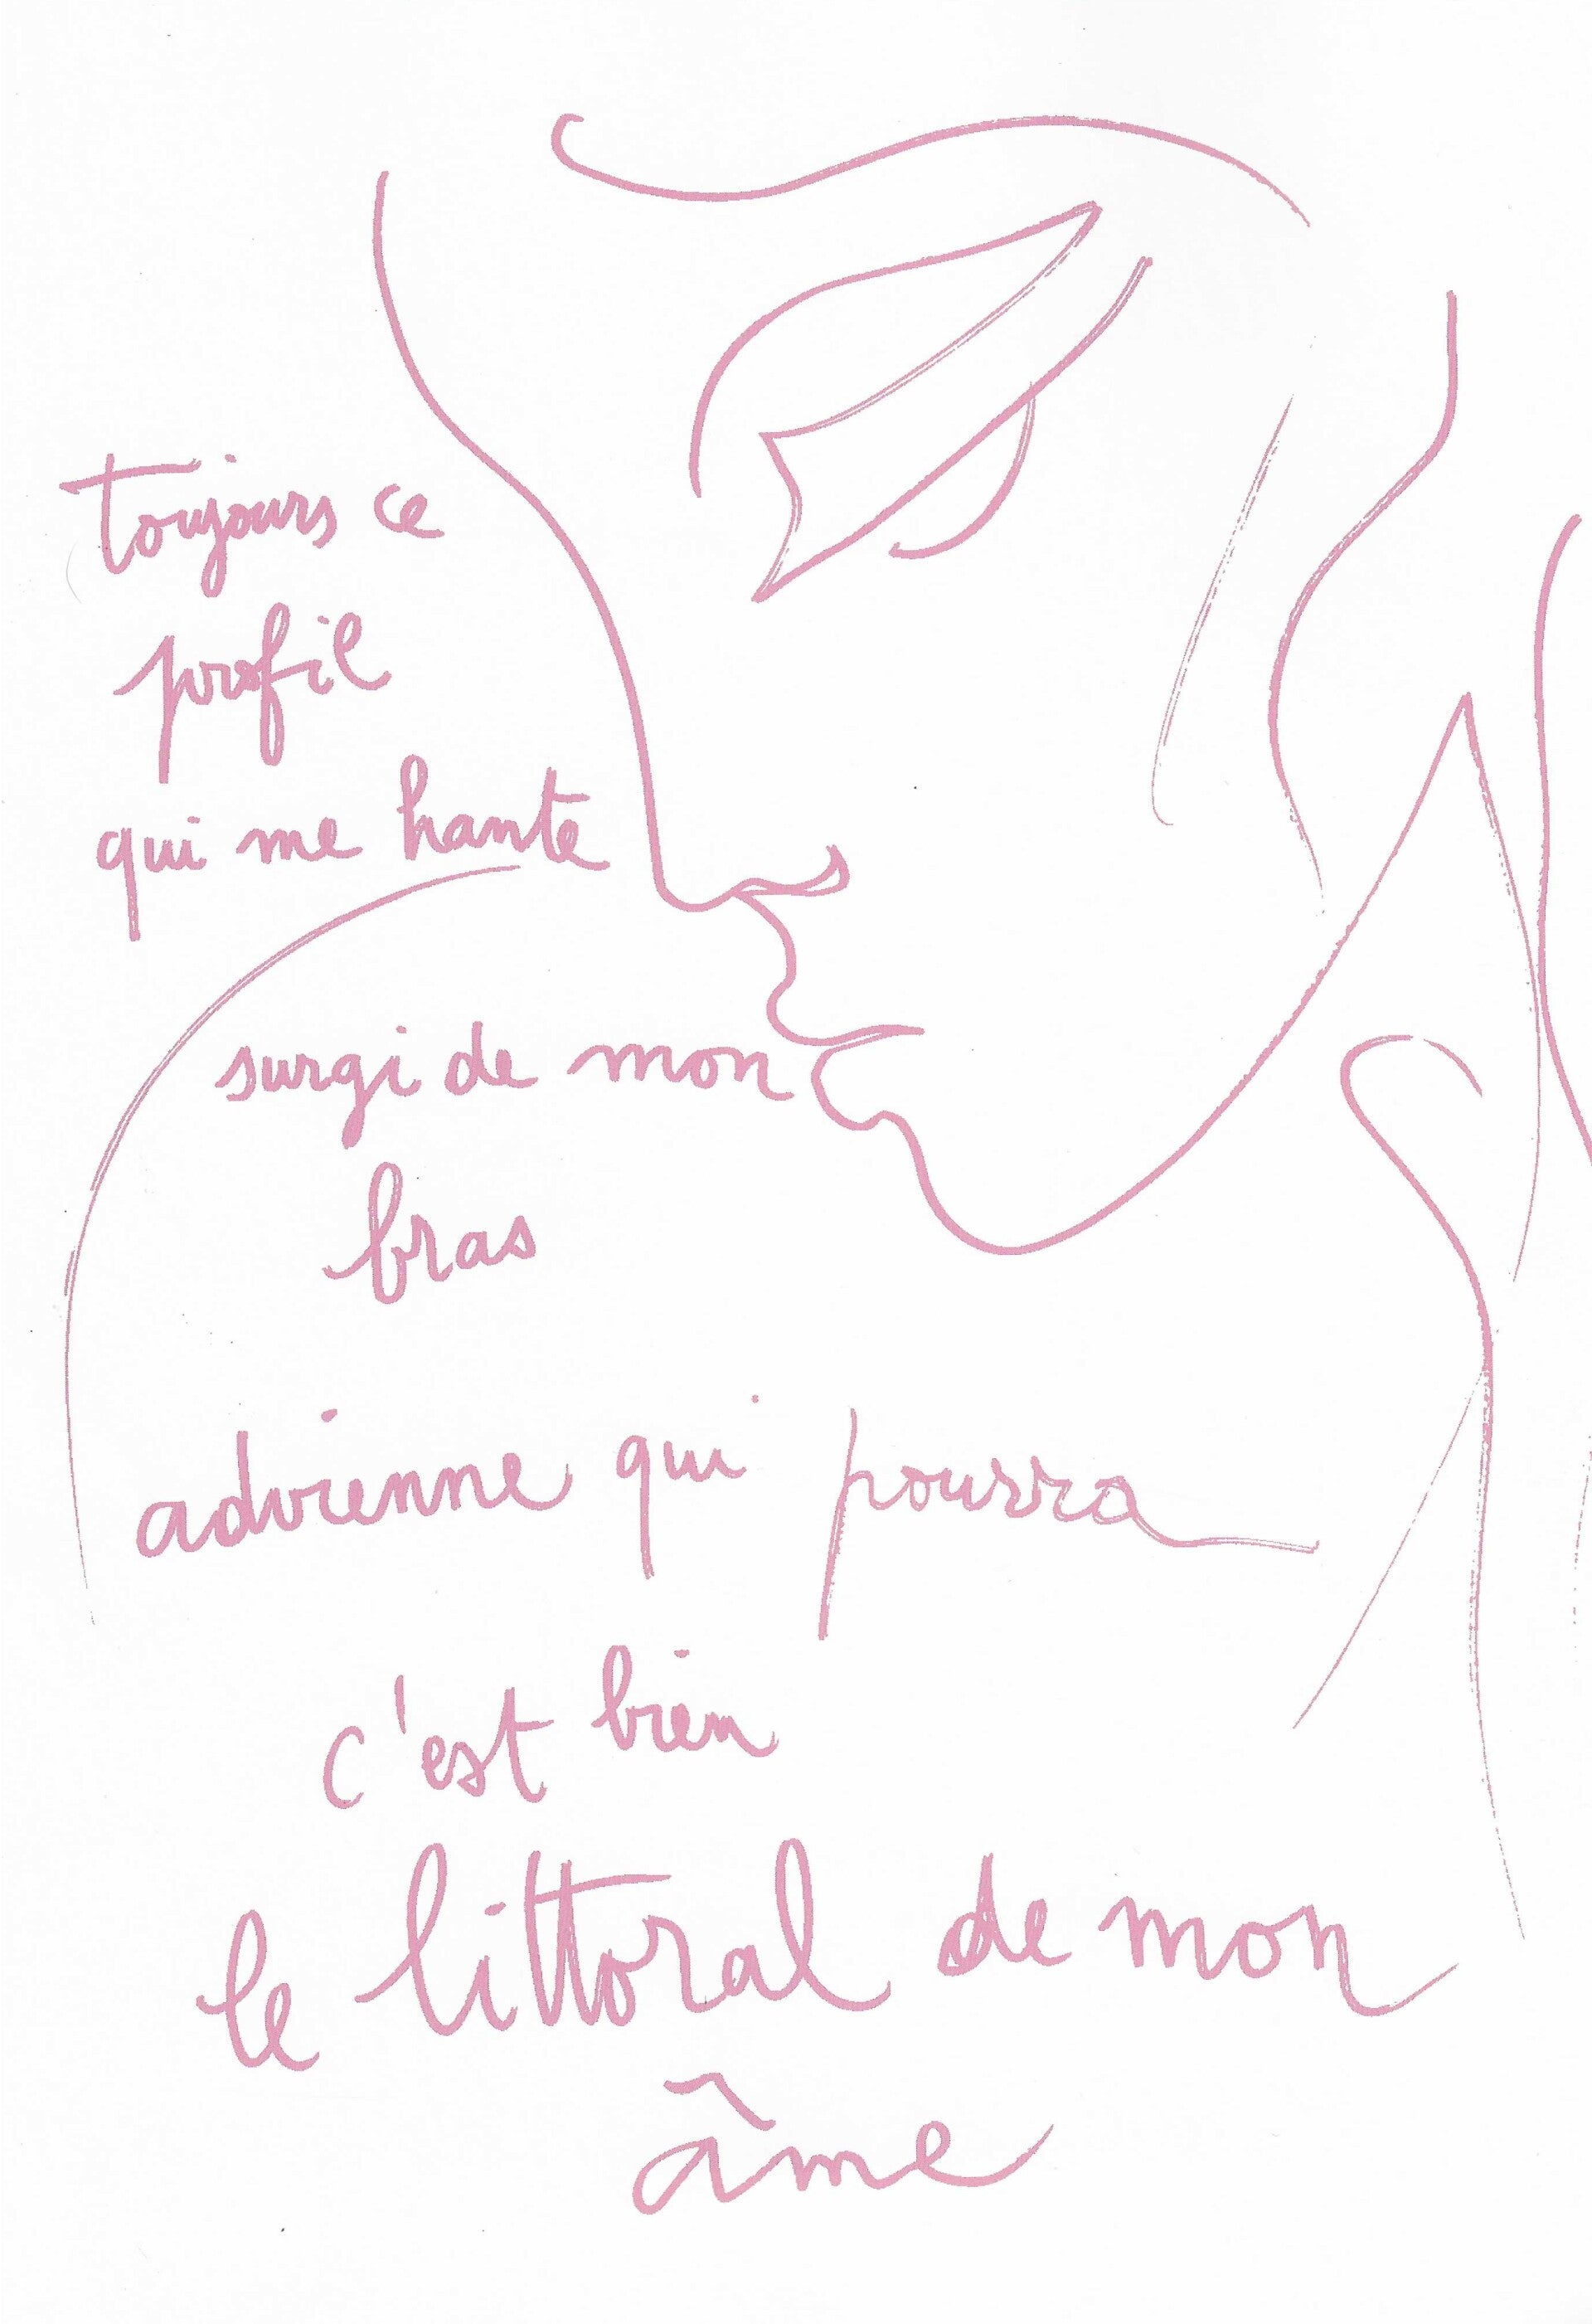 toujours ce
profil
qui me hante
surgi de mon
bras
advienne qui pourra
c'est bien
le littoral de mon
âme